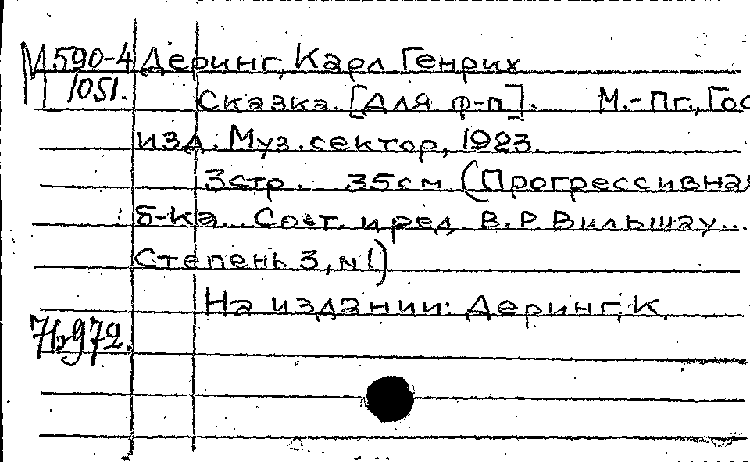 М 590-4 Деринг, Карл Генрих
1051. Сказка. [Для ф-п]. М.-Пг., Гос
изд. Муз. сектор, 1923.
3 стр. 35 см (Прогрессивная
б-ка. Сост. и ред. В. Р. Вильшау...
Степень 3, №1)
На издании: Деринг, К.